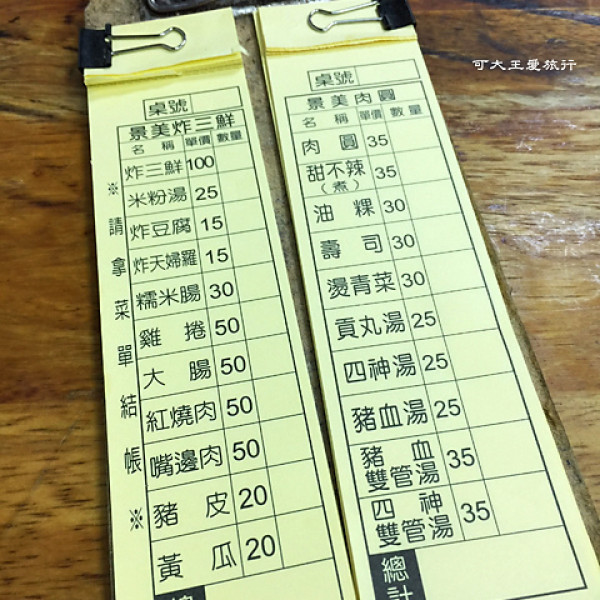 可大王愛旅行
桌號
景美炸三鮮
名稱 單價 數量
炸三鮮 100
米粉湯 25
炸豆腐 15
炸天婦羅 15
糯米腸 30
雞捲 50
大腸 50
紅燒肉 50
嘴邊肉 50
豬皮 20
黃瓜 20
※請拿菜單結帳※
桌號
景美肉圓
名稱 單價 數量
肉圓 35
甜不辣 35
(煮)
油粿 30
壽司 30
燙青菜 30
貢丸湯 25
四神湯 25
豬血湯 25
豬血
雙管湯 35
四神
雙管湯 35
總計